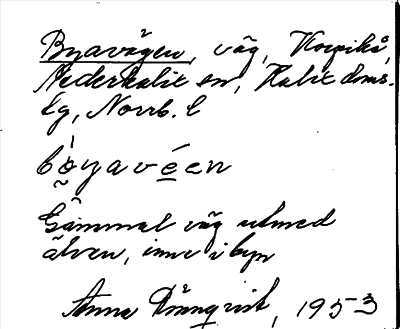 Byavägen, väg, Korpikå,
Nederkalix sn, Kalix doms.
lg, Norrb. l
bo̰yavé̲en
Gammal väg utmed
älven, inne i byn
Anna Rönnqvist, 1953